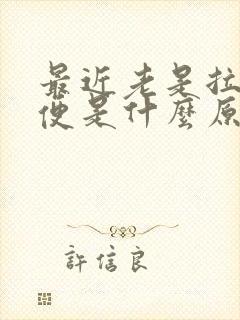 最近老是拉
便是什麼原
許信良